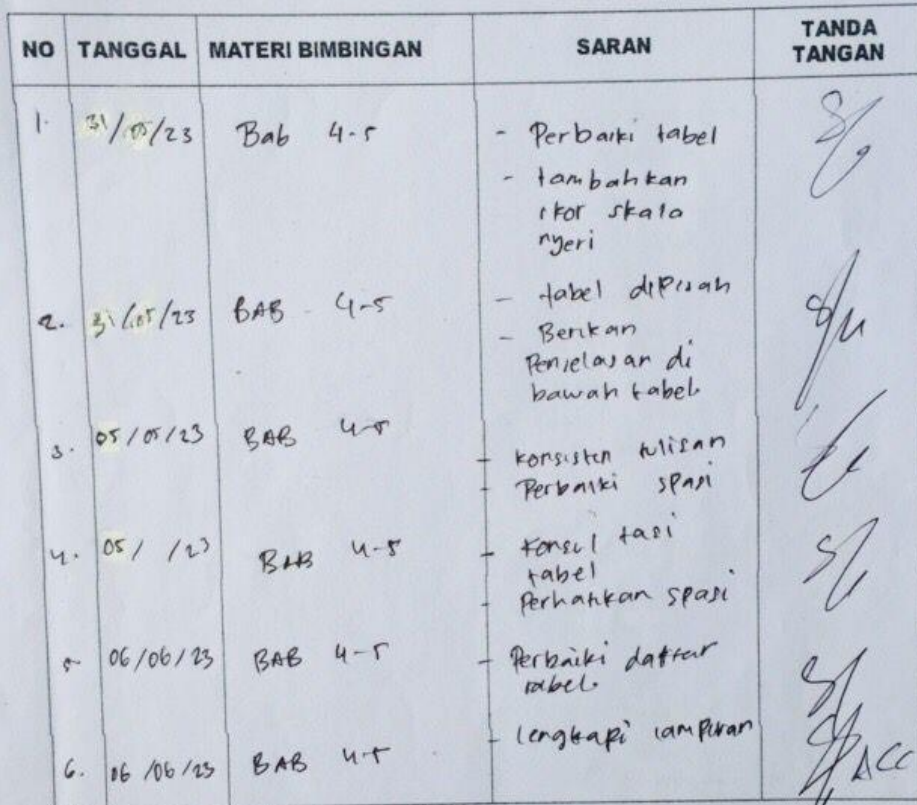 NO TANGGAL MATERI BIMBINGAN SARAN TANDA TANGAN
1. 31/05/23 Bab 4-5 - Perbaiki tabel
- tambahkan
skor skala
nyeri
2. 31/05/23 BAB 4-5 - tabel dipisah
- Berikan
Penjelasan di
bawah tabel.
3. 05/05/23 BAB 4-5 - konsisten tulisan
- Perbaiki spasi
4. 05/ /23 BAB 4-5 - Konsul tasi
tabel
- Perhatikan spasi
5. 06/06/23 BAB 4-5 - Perbaiki daftar
tabel.
6. 06/06/23 BAB 4-5 - lengkapi lampiran
ACC